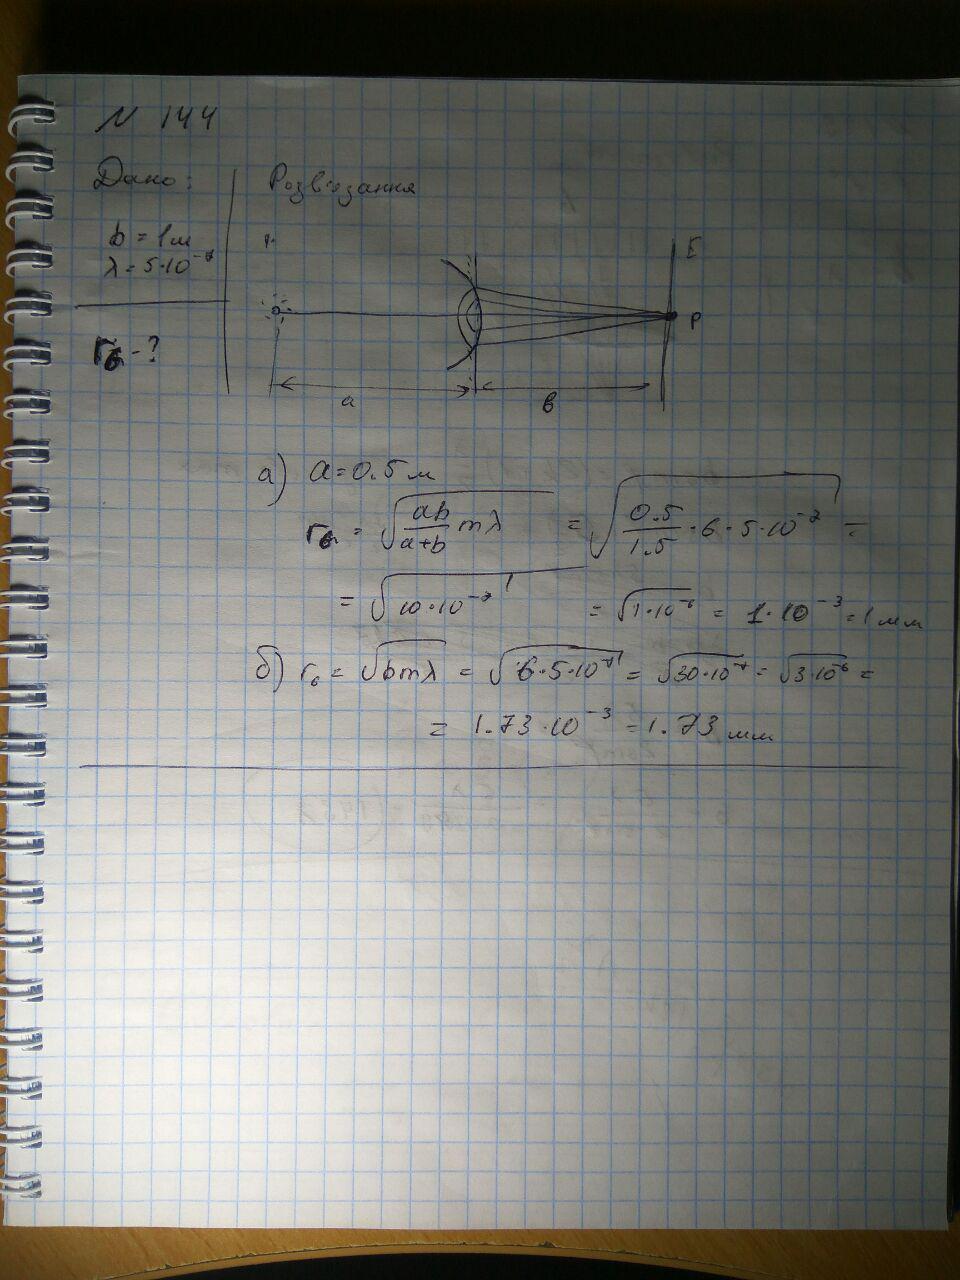 N 144
Дано:
Розв'язання
b = 1м
λ = 5·10⁻⁷
r₆ - ?
E
P
a
в
а) a = 0.5 м
r₆ = √(ab/(a+b) mλ) = √(0.5/1.5 · 6 · 5·10⁻⁷) =
= √(10·10⁻⁷) = √(1·10⁻⁶) = 1·10⁻³ = 1 мм
б) r₆ = √(bmλ) = √(6·5·10⁻⁷) = √(30·10⁻⁷) = √(3·10⁻⁶) =
= 1.73·10⁻³ = 1.73 мм